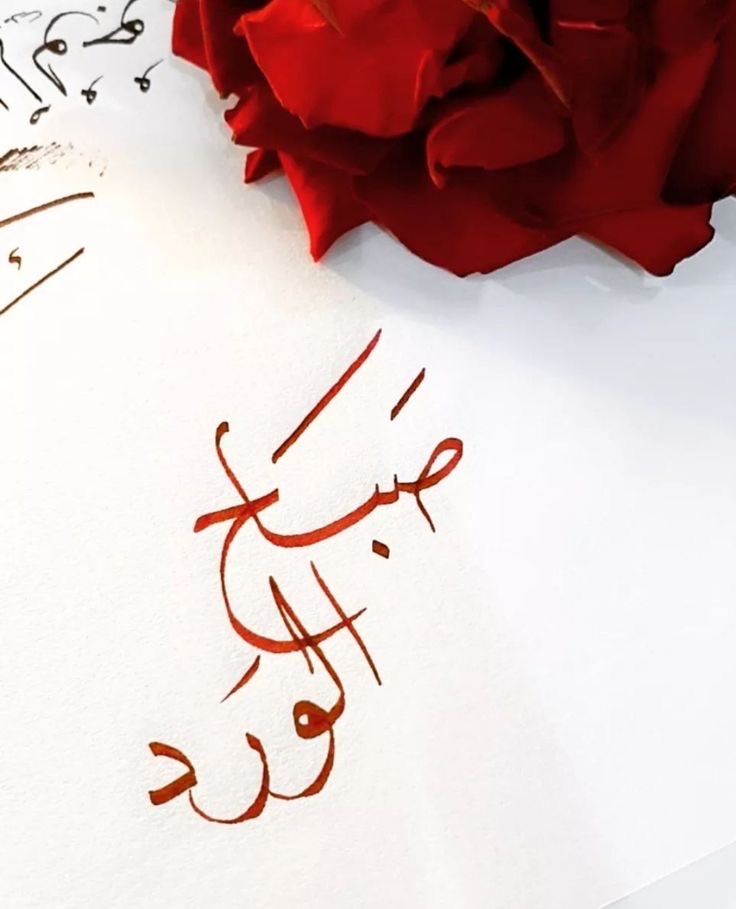 صَباح
الوَرد